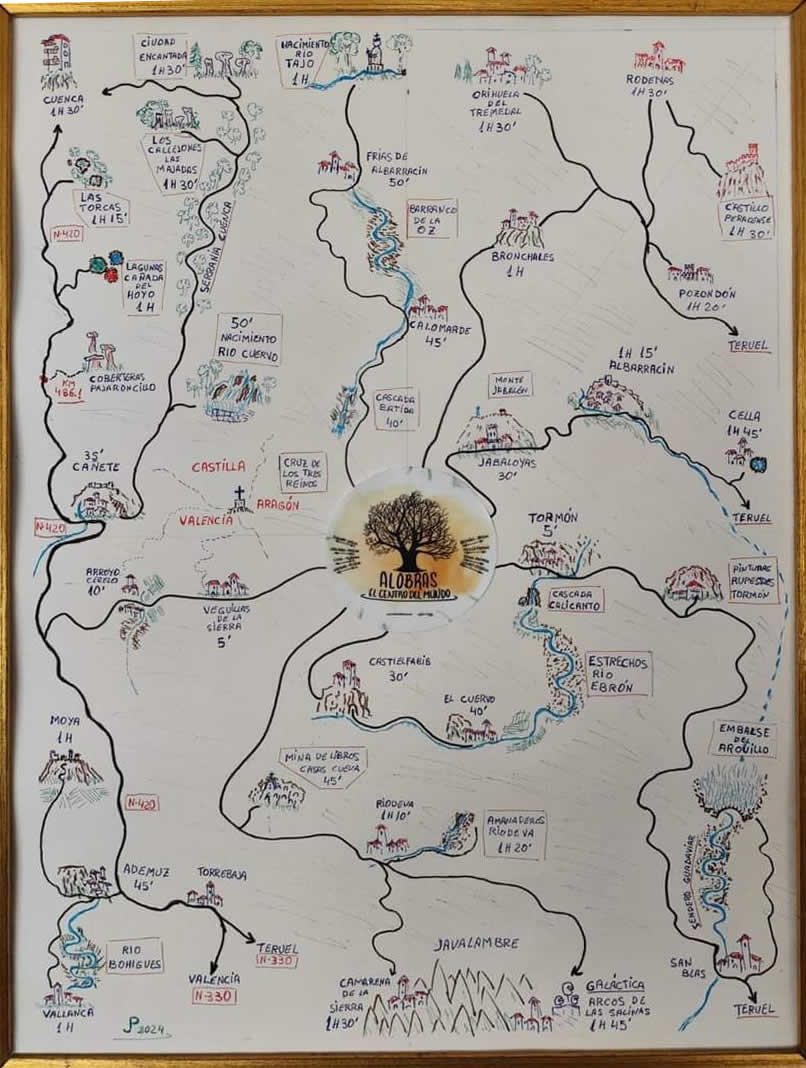 CUENCA
1H 30'
CIUDAD
ENCANTADA
1H 30'
NACIMIENTO
RIO
TAJO
1H
ORIHUELA
DEL
TREMEDAL
1H 30'
RODENAS
1H 30'
LOS
CALLEJONES
LAS
MAJADAS
1H 30'
LAS
TORCAS
1H 15'
N-420
FRÍAS DE
ALBARRACÍN
50'
BARRANCO
DE LA
OZ
CASTILLO
PERACENSE
1H 30'
BRONCHALES
1H
SERRANÍA CUENCA
LAGUNAS
CAÑADA
DEL
HOYO
1H
POZONDÓN
1H 20'
TERUEL
CALOMARDE
45'
50'
NACIMIENTO
RIO CUERVO
COBERTERAS
PAJARONCILLO
KM
486.1
CASCADA
BATIDA
40'
MONTE
JABALÓN
1H 15'
ALBARRACÍN
CELLA
1H 45'
JABALOYAS
30'
35'
CAÑETE
CASTILLA
CRUZ DE
LOS TRES
REINOS
ARAGÓN
VALENCIA
N-420
TERUEL
TORMÓN
5'
ALOBRAS
EL CENTRO DEL MUNDO
ARROYO
CEREZO
10'
VEGUILLAS
DE LA
SIERRA
5'
CASCADA
CALICANTO
PINTURAS
RUPESTRES
TORMÓN
CASTIELFABIB
30'
ESTRECHOS
RÍO
EBRÓN
EL CUERVO
40'
MOYA
1H
EMBALSE
DEL
ARQUILLO
MINA DE LIBROS
CASAS CUEVA
45'
N-420
RIODEVA
1H 10'
AMANADEROS
RIODEVA
1H 20'
SENDERO GUADALAVIAR
ADEMUZ
45'
TORREBAJA
TERUEL
N-330
VALENCIA
N-330
RIO
BOHIGUES
VALLANCA
1H
JAVALAMBRE
CAMARENA
DE LA
SIERRA
1H 30'
GALÁCTICA
ARCOS DE
LAS SALINAS
1H 45'
SAN
BLAS
TERUEL
2024